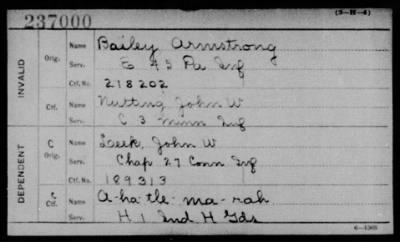 (3-H-4)
237000
INVALID
Orig.
Name Bailey Armstrong
Serv. E 45 Pa Inf
Ctf. No. 218202
Ctf.
Name Nutting John W
Serv. C 3 Minn Inf
DEPENDENT
C
Orig.
Name Leek, John W
Serv. Chap 27 Conn Inf
Ctf. No. 189313
C
Ctf.
Name A-ha-tle-ma-rah
Serv. H 1 Ind H Gds